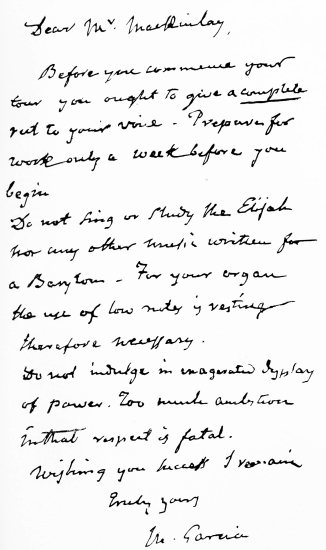 Dear Mr. Mackinlay,
Before you commence your
tour you ought to give a complete
rest to your voice – Prepare for
work only a week before you
begin
Do not sing or study the Elijah
nor any other music written for
a Barytone – For your organ
the use of low notes is resting
therefore necessary.
Do not indulge in exagerated dysplay
of power. Too much ambition
in that respect is fatal.
Wishing you success I remain
Truly yours
M. Garcia